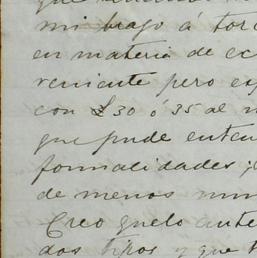 mi brazo á tor
en materia de ec
veniente pero ex
con £30 ó 35 al m
que pude enten
formalidades;
de menos
Creo quelo ante
dos tipos y que t